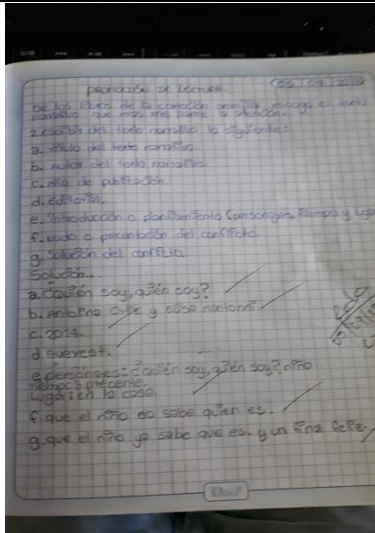 promoción de lectura
de los libros de la colección semilla, escoge el texto
narrativo que más me llame la atención.
2. escribir del texto narrativo lo siguiente:
a. título del texto narrativo.
b. autor del texto narrativo.
c. año de publicación.
d. editorial.
e. introducción o planteamiento (personajes, tiempo y lugar
f. nudo o presentación del conflicto.
g. solución del conflicto.
Solución...
a. ¿quién soy, quién soy?
b. Antolina y elisa
c. 2014.
d. everest.
e. personajes: ¿quién soy, quién soy?, niño
tiempo: precente.
Lugar: en la casa.
f. que el niño no sabe quien es.
g. que el niño ya sabe que es. y un fina feliz.